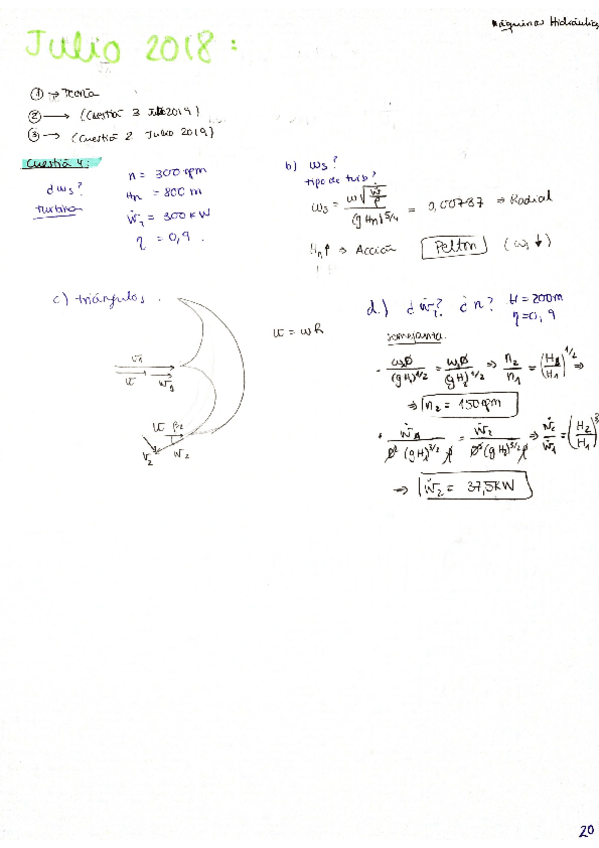 Máquinas Hidráulicas
Julio 2018:
① → Teoría
② → (Cuestión 3 Julio 2019)
③ → (Cuestión 2 Julio 2019)
Cuestión 4:
¿ws?
turbina
n = 300 rpm
Hn = 800 m
Ẇ1 = 300 kW
η = 0,9.
b) ws?
tipo de turb?
ws = w√(Ẇ/ρ) / (gHn)^5/4 = 0,00787 ⇒ Radial
Hn↑ ⇒ Acción Pelton (ws ↓)
c) triángulos.
u = wR
v1
u w1
u β2
v2 w2
d.) ¿Ẇ2? ¿n? H = 200m
η = 0,9
semejanza.
· w2Ø/(gH2)^1/2 = w1Ø/(gH1)^1/2 ⇒ n2/n1 = (H2/H1)^1/2 ⇒
⇒ n2 = 150 rpm
· Ẇ1/(Ø²(gH1)^3/2 ρ) = Ẇ2/(Ø²(gH2)^3/2 ρ) ⇒ Ẇ2/Ẇ1 = (H2/H1)^3
⇒ Ẇ2 = 37,5 kW
20